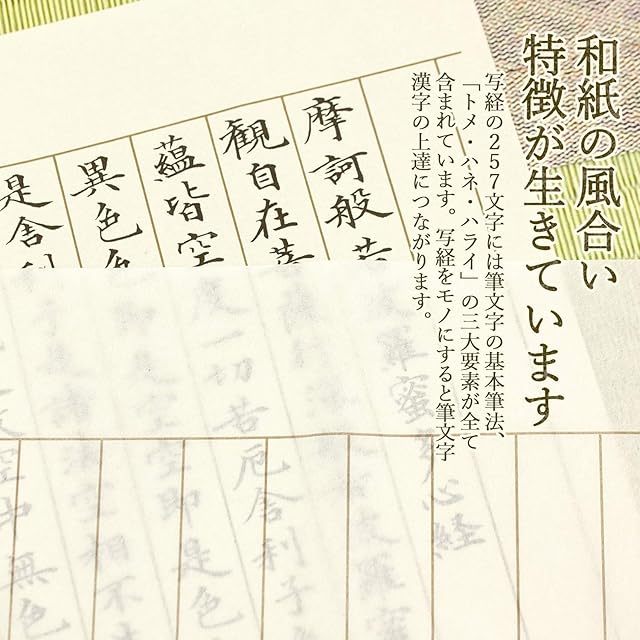 和紙の風合い
特徴が生きています
写経の257文字には筆文字の基本筆法、
「トメ・ハネ・ハライ」の三大要素が全て
含まれています。写経をモノにすると筆文字
漢字の上達につながります。
摩訶般若波羅蜜多心経
観自在菩
蘊皆空度一切苦厄舎利子
異色色即是空空即是色
是舎利子是諸法空相不
空中無色